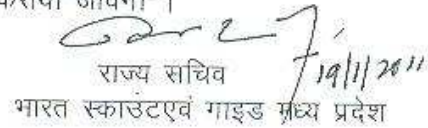 कराया जावेगा ।
19/1/2011
राज्य सचिव
भारत स्काउटएवं गाइड मध्य प्रदेश